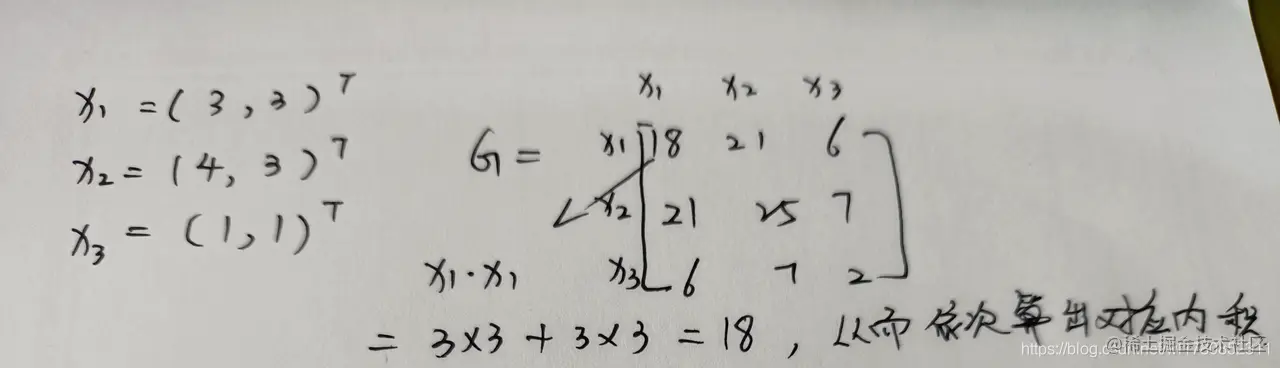 x₁ = (3, 3)ᵀ
x₂ = (4, 3)ᵀ
x₃ = (1, 1)ᵀ
x₁ x₂ x₃
G = x₁ 18 21 6
x₂ 21 25 7
x₃ 6 7 2
x₁·x₁
= 3×3 + 3×3 = 18, 从而依次算出对应内积
@稀土掘金技术社区